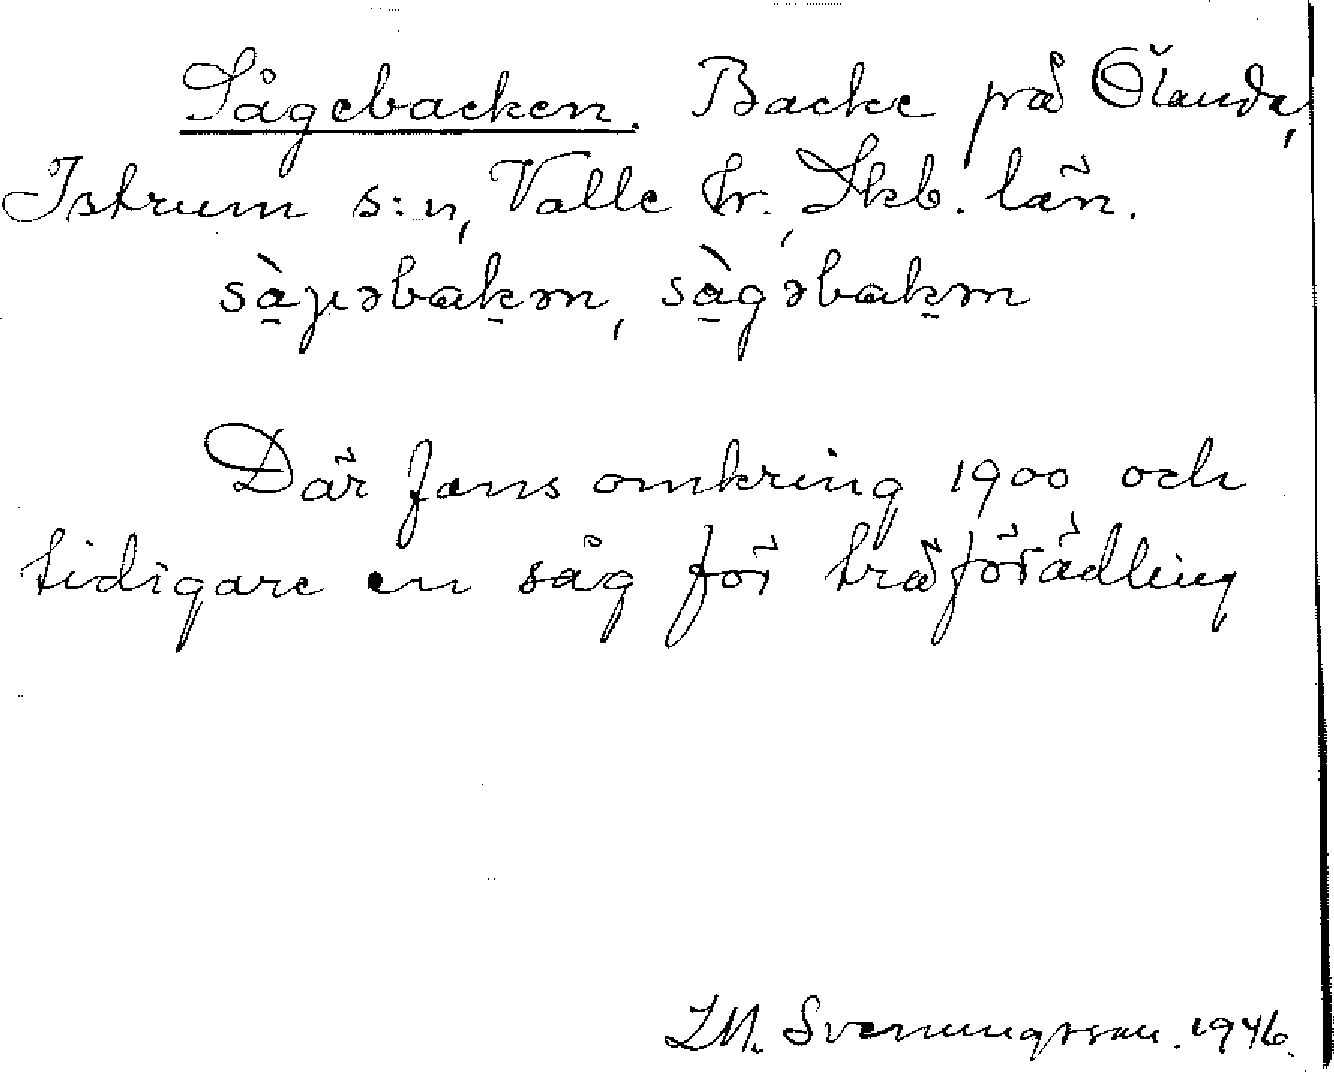 Sågebacken. Backe på Ölanda,
Istrum s:n, Valle hr., Skb. län.
Där fans omkring 1900 och
tidigare en såg för träförädling
I.M. Svenungsson. 1946.